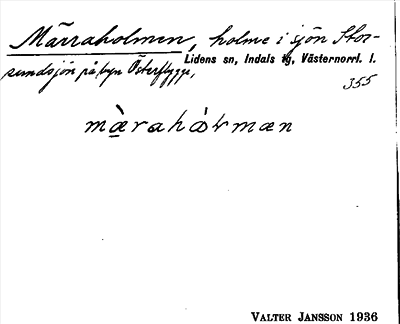 Märraholmen, holme i sjön Stor-
sundsjön på byn Österflygge,
Lidens sn, Indals tg, Västernorrl. l.
355
mæ̀rahåɽmæn
VALTER JANSSON 1936